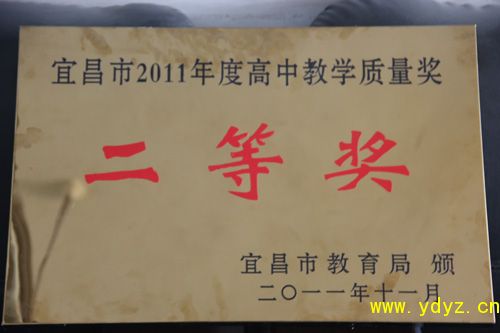 宜昌市2011年度高中教学质量奖
二等奖
宜昌市教育局 颁
二〇一一年十一月
www.ydyz.cn